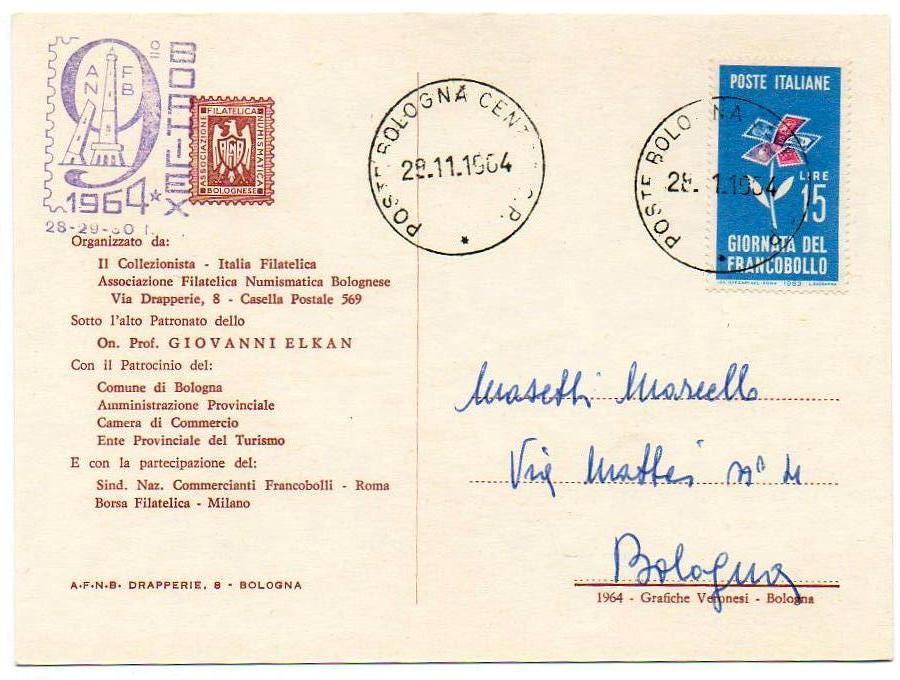 9º BOPHILEX
A F
N B
1964*
28-29-30
ASSOCIAZIONE FILATELICA NUMISMATICA BOLOGNESE
Organizzato da:
Il Collezionista - Italia Filatelica
Associazione Filatelica Numismatica Bolognese
Via Drapperie, 8 - Casella Postale 569
Sotto l'alto Patronato dello
On. Prof. GIOVANNI ELKAN
Con il Patrocinio del:
Comune di Bologna
Amministrazione Provinciale
Camera di Commercio
Ente Provinciale del Turismo
E con la partecipazione del:
Sind. Naz. Commercianti Francobolli - Roma
Borsa Filatelica - Milano
A·F·N·B· DRAPPERIE, 8 - BOLOGNA
POSTE BOLOGNA CENT C.P.
28.11.1964
*
POSTE BOLOGNA
28. 1.1964
POSTE ITALIANE
LIRE
15
GIORNATA DEL
FRANCOBOLLO
1963
Masetti Marcello
Via Mattei nº
Bologna
1964 - Grafiche Veronesi - Bologna